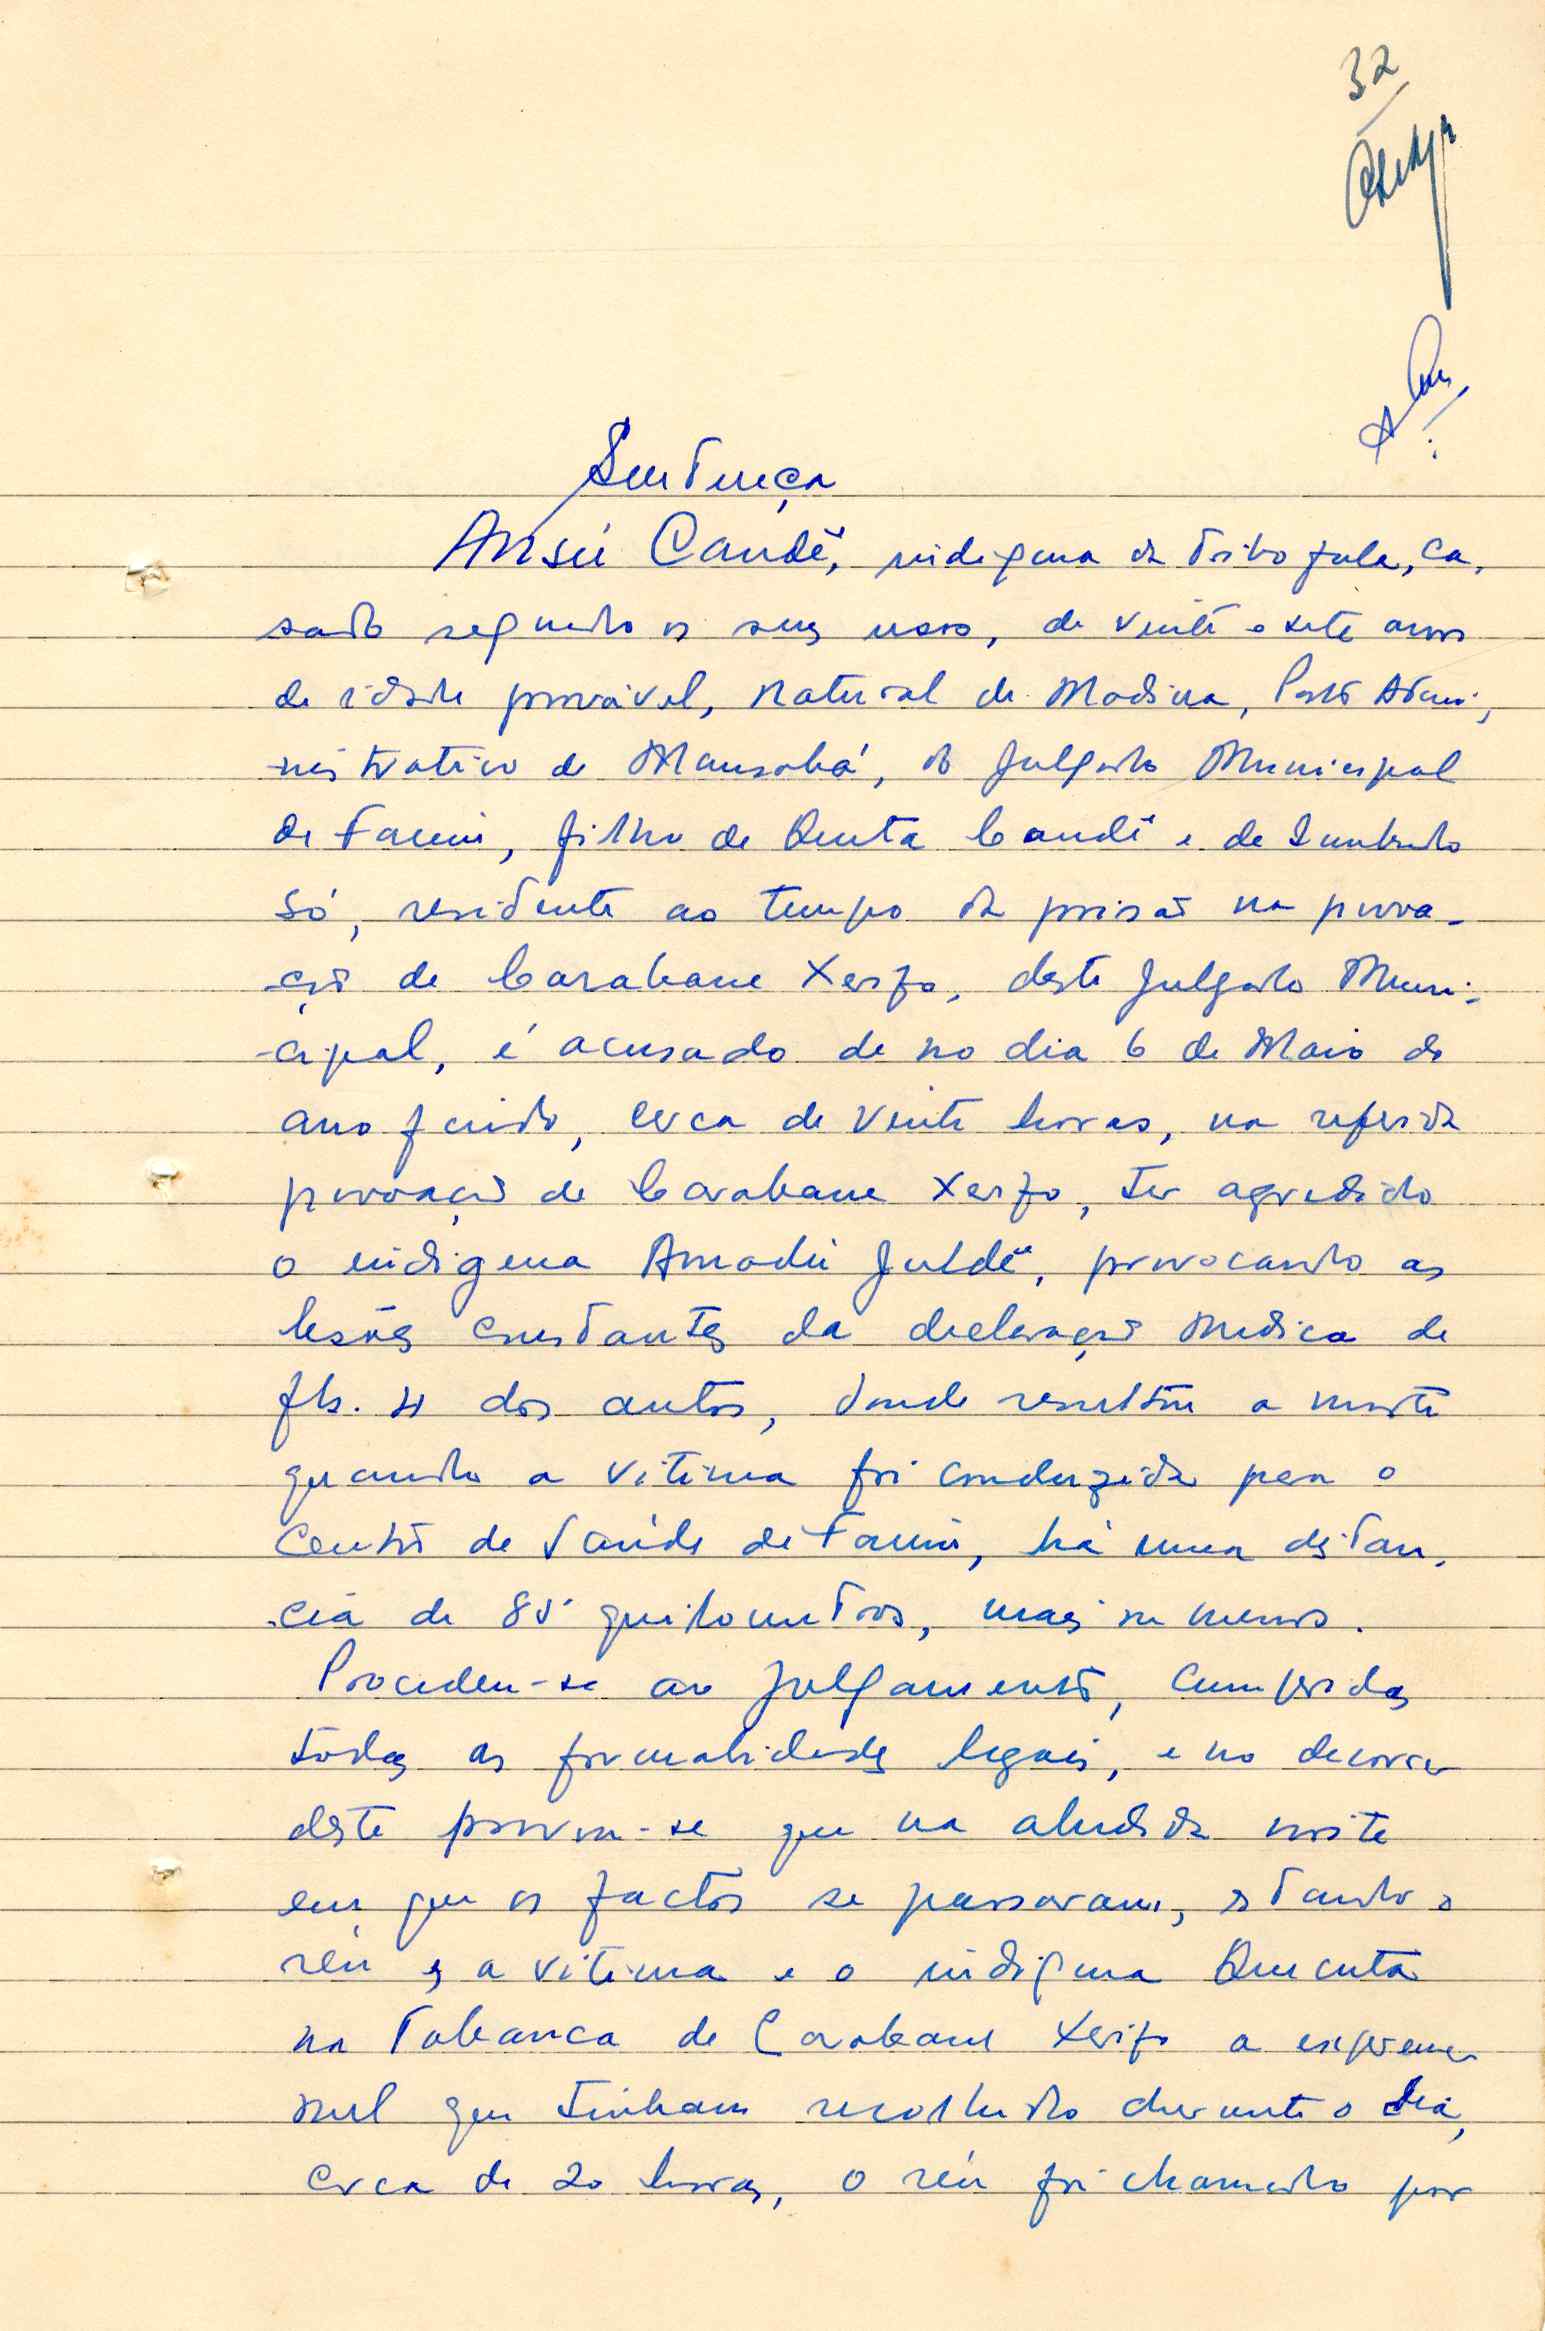 32
Sentença
Ansú Candé, indigena da tribo fula, ca-
sado segundo os seus usos, de vinte e sete anos
de idade provável, natural de Madina, Posto Admi-
nistrativo de Mansabá, do Julgado Municipal
de Farim, filho de Quuta Candé e de Sumbudo
Só, residente ao tempo da prisão na povoa-
ção de Carabane Xerifo, deste Julgado Muni-
cipal, é acusado de no dia 6 de Maio do
ano findo, cerca de vinte horas, na referida
povoação de Carabane Xerifo, ter agredido
o indigena Amadú Juldé, provocando as
lesões constantes da declaração medica de
fls. 4 dos autos, donde resultou a morte
quando a vitima foi conduzida para o
Centro de Saúde de Farim, há uma distan-
cia de 85 quilometros, mais ou menos.
Procedeu-se ao julgamento, cumpridas
todas as formalidades legais, e no decorrer
deste provou-se que na aludida noite
em que os factos se passaram, estando o
réu e, a vitima e o indigena Quecuta
na Tabanca de Carabane Xerifo a espremer
mel que tinham recolhido durante o dia,
cerca de 20 horas, o réu foi chamado por